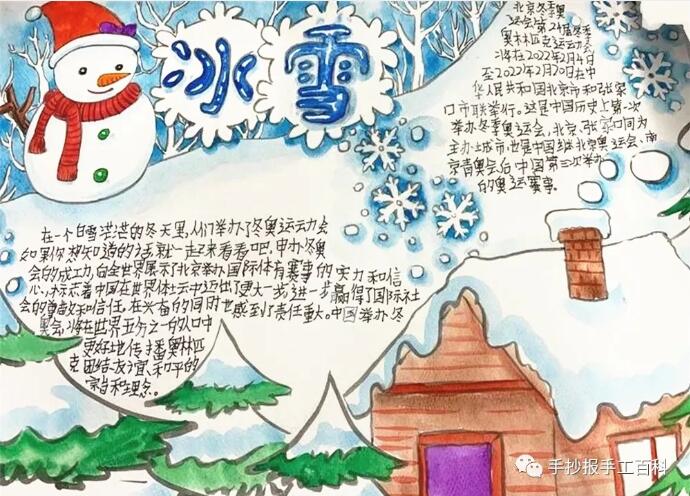 冰雪
北京冬季奥
运会第24届冬季
奥林匹克运动会
将在2022年2月4日
至2022年2月20日在中
华人民共和国北京市和张家
口市联举行。这是中国历史上第一次
举办冬季奥运会,北京、张家口同为
主办城市,也是中国继北京奥运会、南
京青奥会后,中国第三次举办
的奥运赛事。
在一个白雪茫茫的冬天里,人们举办了冬奥运动会
如果你想知道的话就一起来看看吧,申办冬奥
会的成功,向全世界展示了北京举办国际体育赛事的实力和信
心,标志着中国在世界体坛中迈出了更大一步,进一步赢得了国际社
会的尊敬和信任,在兴奋的同时也感到了责任重大。中国举办冬
奥会,将在世界五分之一的人口中
更好地传播奥林匹
克团结、友谊、和平的
宗旨和理念。
手抄报手工百科